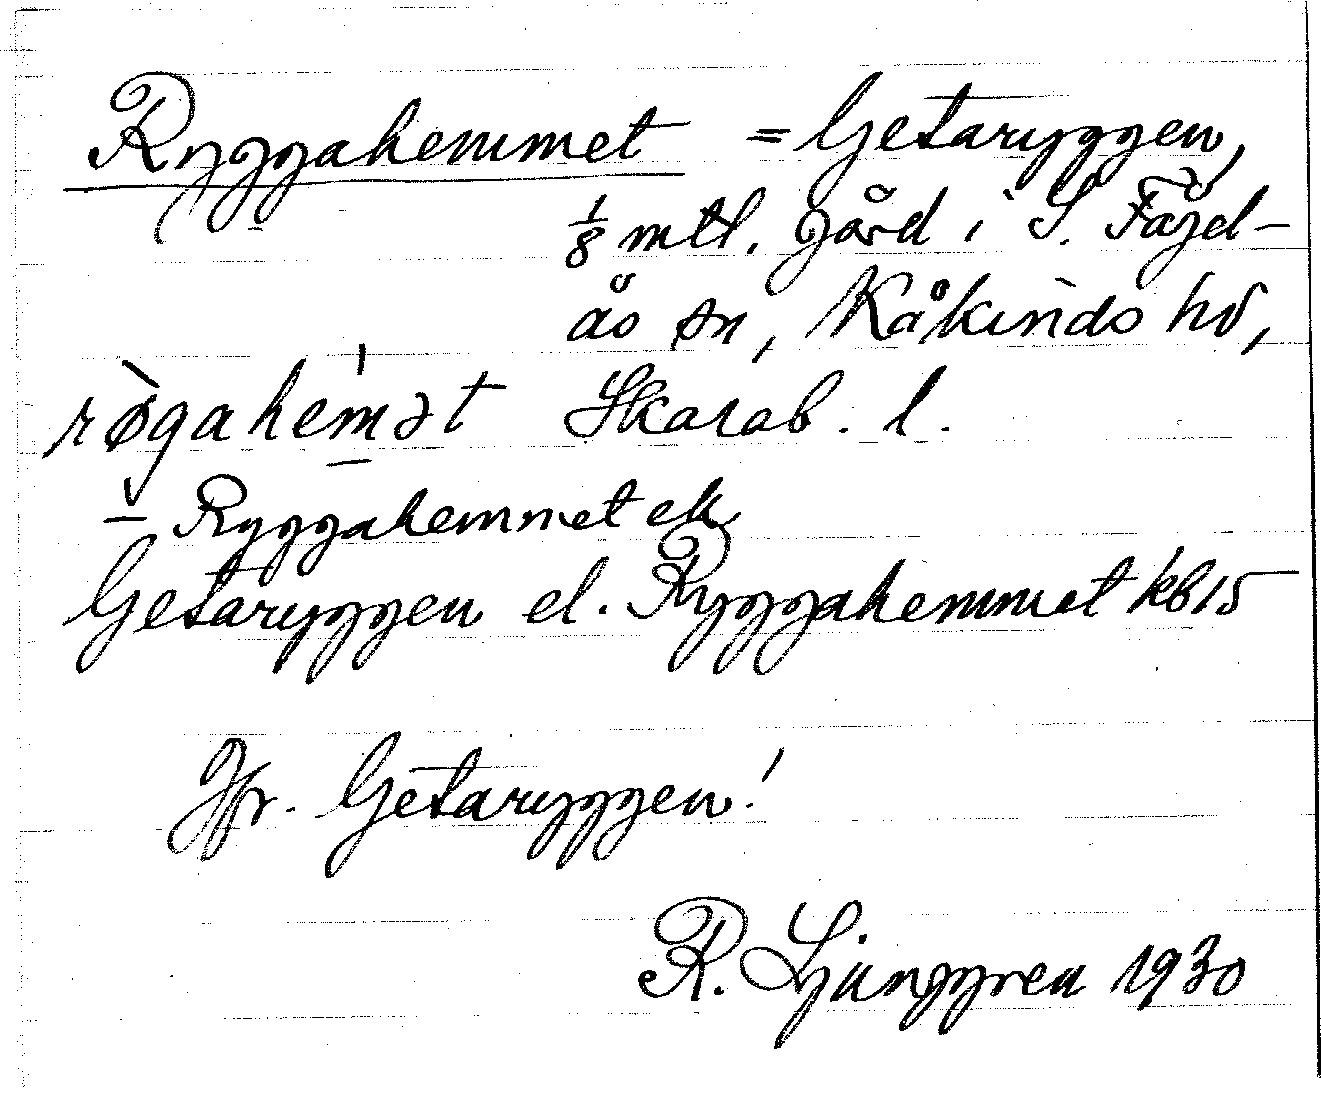 Ryggahemmet = Getaryggen,
1/8 mtl. gård i S. Fågel-
ås sn, Kåkinds hd,
røgahemət Skarab. l.
– Ryggahemmet ek
Getaryggen el. Ryggahemmet kb 15
Jfr. Getaryggen!
R. Ljunggren 1930